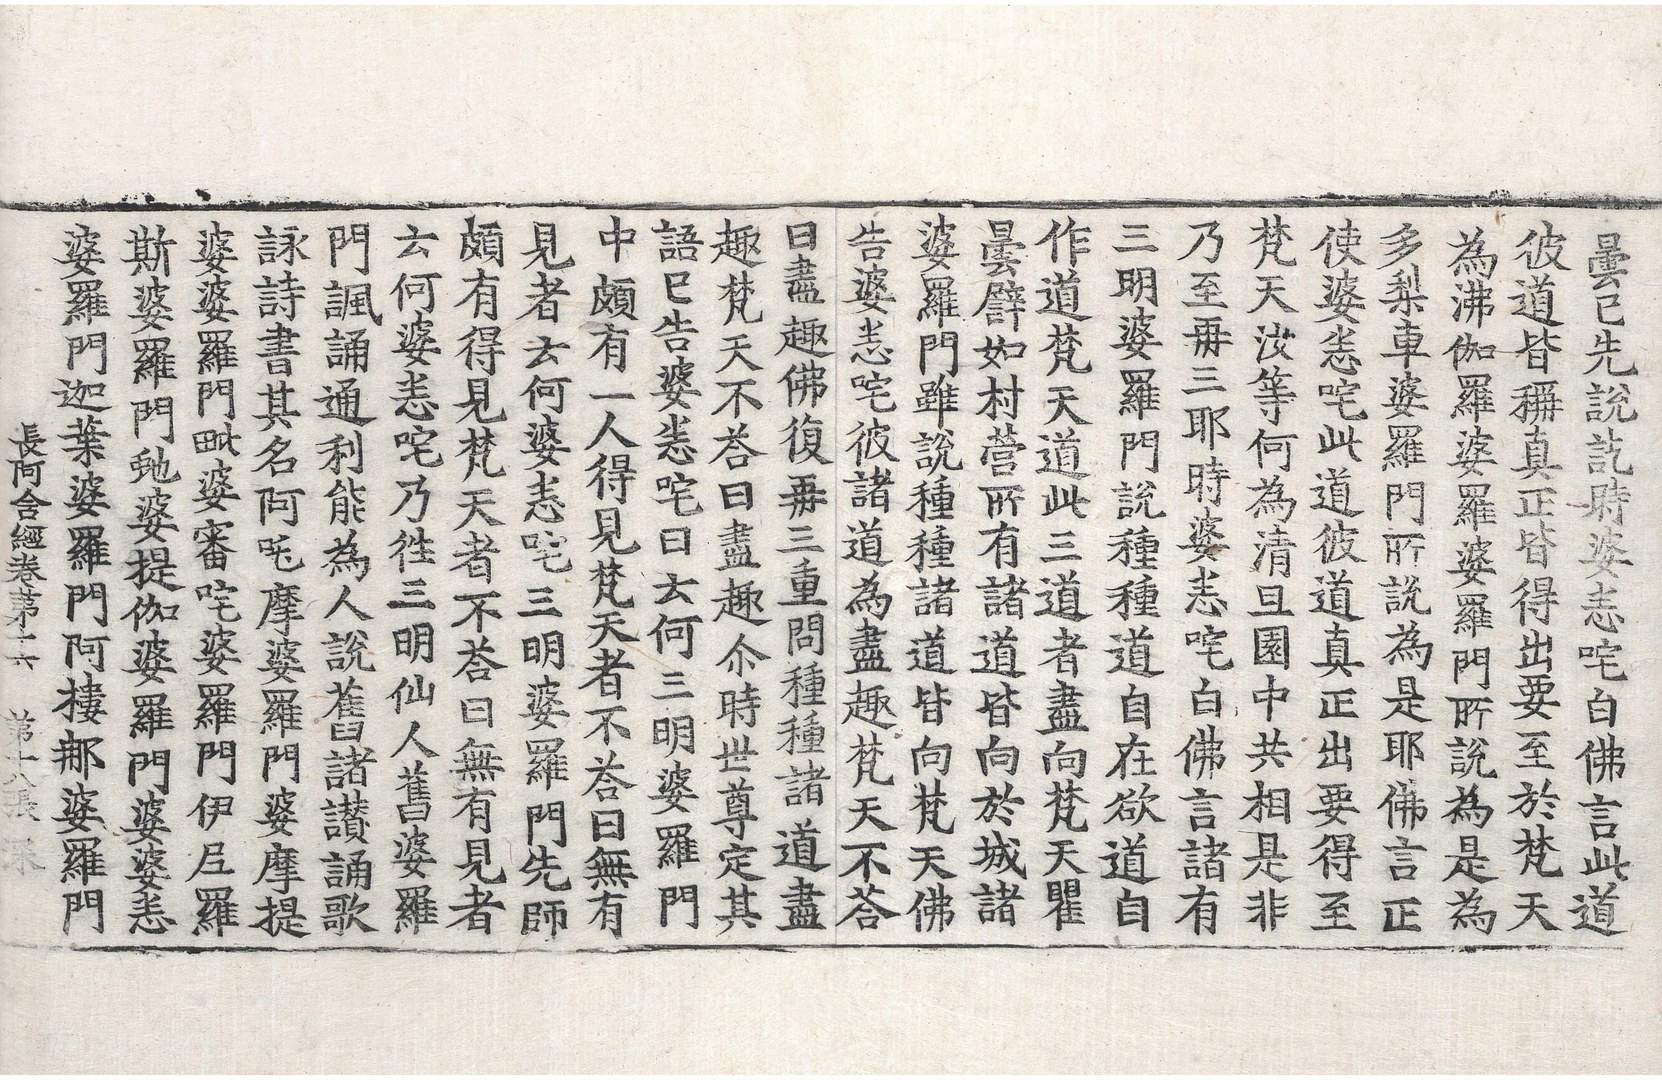 曇已先說訖時婆悉咤白佛言此道
彼道皆稱真正皆得出要至於梵天
為沸伽羅婆羅婆羅門所說為是為
多梨車婆羅門所說為是耶佛言正
使婆悉咤此道彼道真正出要得至
梵天汝等何為清旦園中共相是非
乃至再三耶時婆悉咤白佛言諸有
三明婆羅門說種種道自在欲道自
作道梵天道此三道者盡向梵天瞿
曇譬如村營所有諸道皆向於城諸
婆羅門雖說種種諸道皆向梵天佛
告婆悉咤彼諸道為盡趣梵天不荅
曰盡趣佛復再三重問種種諸道盡
趣梵天不荅曰盡趣尒時世尊定其
語已告婆悉咤曰云何三明婆羅門
中頗有一人得見梵天者不荅曰無有
見者云何婆悉咤三明婆羅門先師
頗有得見梵天者不荅曰無有見者
云何婆悉咤乃徃三明仙人舊婆羅
門諷誦通利能為人說舊諸讃誦歌
詠詩書其名阿吒摩婆羅門婆摩提
婆婆羅門毗婆審咤婆羅門伊尼羅
斯婆羅門虵婆提伽婆羅門婆婆悉
婆羅門迦葉婆羅門阿樓那婆羅門
長阿含經卷第十六 第十八張 深